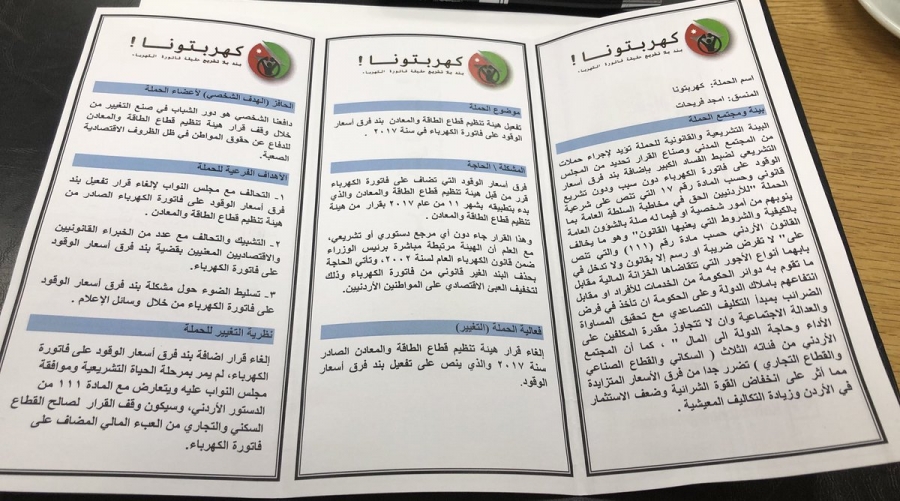 كهربتونا !
بند بلا تفريع حقيقة فاتورة الكهرباء.
اسم الحملة: كهربتونا
المنسق: امجد فريحات
بيئة ومجتمع الحملة
البيئة التشريعية والقانونية للحملة تؤيد لإجراء حملات
من المجتمع المدني وصناع القرار تحديد من المجلس
التشريعي لضبط الفساد الكبير بإضافة بند فرق أسعار
الوقود على فاتورة الكهرباء دون سبب ودون تشريع
قانوني وحسب المادة رقم ١٧ التي تنص على شرعية
الحملة "للأردنيين الحق في مخاطبة السلطة العامة بما
ينوبهم من أمور شخصية او فيما له صلة بالشؤون العامة
بالكيفية والشروط التي يعنيها القانون" وهو ما يخالف
القانون الأردني حسب مادة رقم (١١١) والتي تنص
على " لا تفرض ضريبة او رسم إلا بقانون ولا تدخل في
بابهما أنواع الأجور التي تتقاضاها الخزانة المالية مقابل
ما تقوم به دوائر الحكومة من الخدمات للأفراد او مقابل
انتفاعهم باملاك الدولة وعلى الحكومة ان تأخذ في فرض
الضرائب بمبدأ التكليف التصاعدي مع تحقيق المساواة
والعدالة الاجتماعية وان لا تتجاوز مقدرة المكلفين على
الأداء وحاجة الدولة الى المال " ، كما أن المجتمع
الأردني من فئاته الثلاث ( السكاني والقطاع الصناعي
والقطاع التجاري ) تضرر جدا من فرق الأسعار المتزايدة
مما أثر على انخفاض القوة الشرائية وضعف الاستثمار
في الأردن وزيادة التكاليف المعيشية .
كهربتونا !
بند بلا تفريع حقيقة فاتورة الكهرباء.
موضوع الحملة
تفعيل هيئة تنظيم قطاع الطاقة والمعادن بند فرق أسعار
الوقود على فاتورة الكهرباء في سنة ٢٠١٧ .
المشكلة \ الحاجة
فرق أسعار الوقود التي تضاف على فاتورة الكهرباء
قرر من قبل هيئة تنظيم قطاع الطاقة والمعادن والذي
بدء بتطبيقه بشهر ١١ من عام ٢٠١٧ بقرار من هيئة
تنظيم قطاع الطاقة والمعادن .
وهذا القرار جاء دون أي مرجع دستوري أو تشريعي،
مع العلم أن الهيئة مرتبطة مباشرة برئيس الوزراء
ضمن قانون الكهرباء العام لسنة ٢٠٠٢، وتأتي الحاجة
بحذف البند الغير قانوني من فاتورة الكهرباء وذلك
لتخفيف العبئ الاقتصادي على المواطنين الأردنيين.
فعالية الحملة (التغيير)
إلغاء قرار هيئة تنظيم قطاع الطاقة والمعادن الصادر
سنة ٢٠١٧ والذي ينص على تفعيل بند فرق أسعار
الوقود.
كهربتونا !
بند بلا تفريع حقيقة فاتورة الكهرباء.
الحافز (الهدف الشخصي) لأعضاء الحملة
دافعنا الشخصي هو دور الشباب في صنع التغيير من
خلال وقف قرار هيئة تنظيم قطاع الطاقة والمعادن
للدفاع عن حقوق المواطن في ظل الظروف الاقتصادية
الصعبة.
الأهداف الفرعية للحملة
١- التحالف مع مجلس النواب لإلغاء قرار تفعيل بند
فرق أسعار الوقود على فاتورة الكهرباء الصادر من
هيئة تنظيم قطاع الطاقة والمعادن .
٢- التشبيك والتحالف مع عدد من الخبراء القانونيين
والاقتصاديين المعنيين بقضية بند فرق أسعار الوقود
على فاتورة الكهرباء.
٣- تسليط الضوء حول مشكلة بند فرق أسعار الوقود
على فاتورة الكهرباء من خلال وسائل الإعلام .
نظرية التغيير للحملة
إلغاء قرار اضافة بند فرق أسعار الوقود على فاتورة
الكهرباء، لم يمر بمرحلة الحياة التشريعية وموافقة
مجلس النواب عليه ويتعارض مع المادة ١١١ من
الدستور الأردني، وسيكون وقف القرار لصالح القطاع
السكني والتجاري من العبء المالي المضاف على
فاتورة الكهرباء.